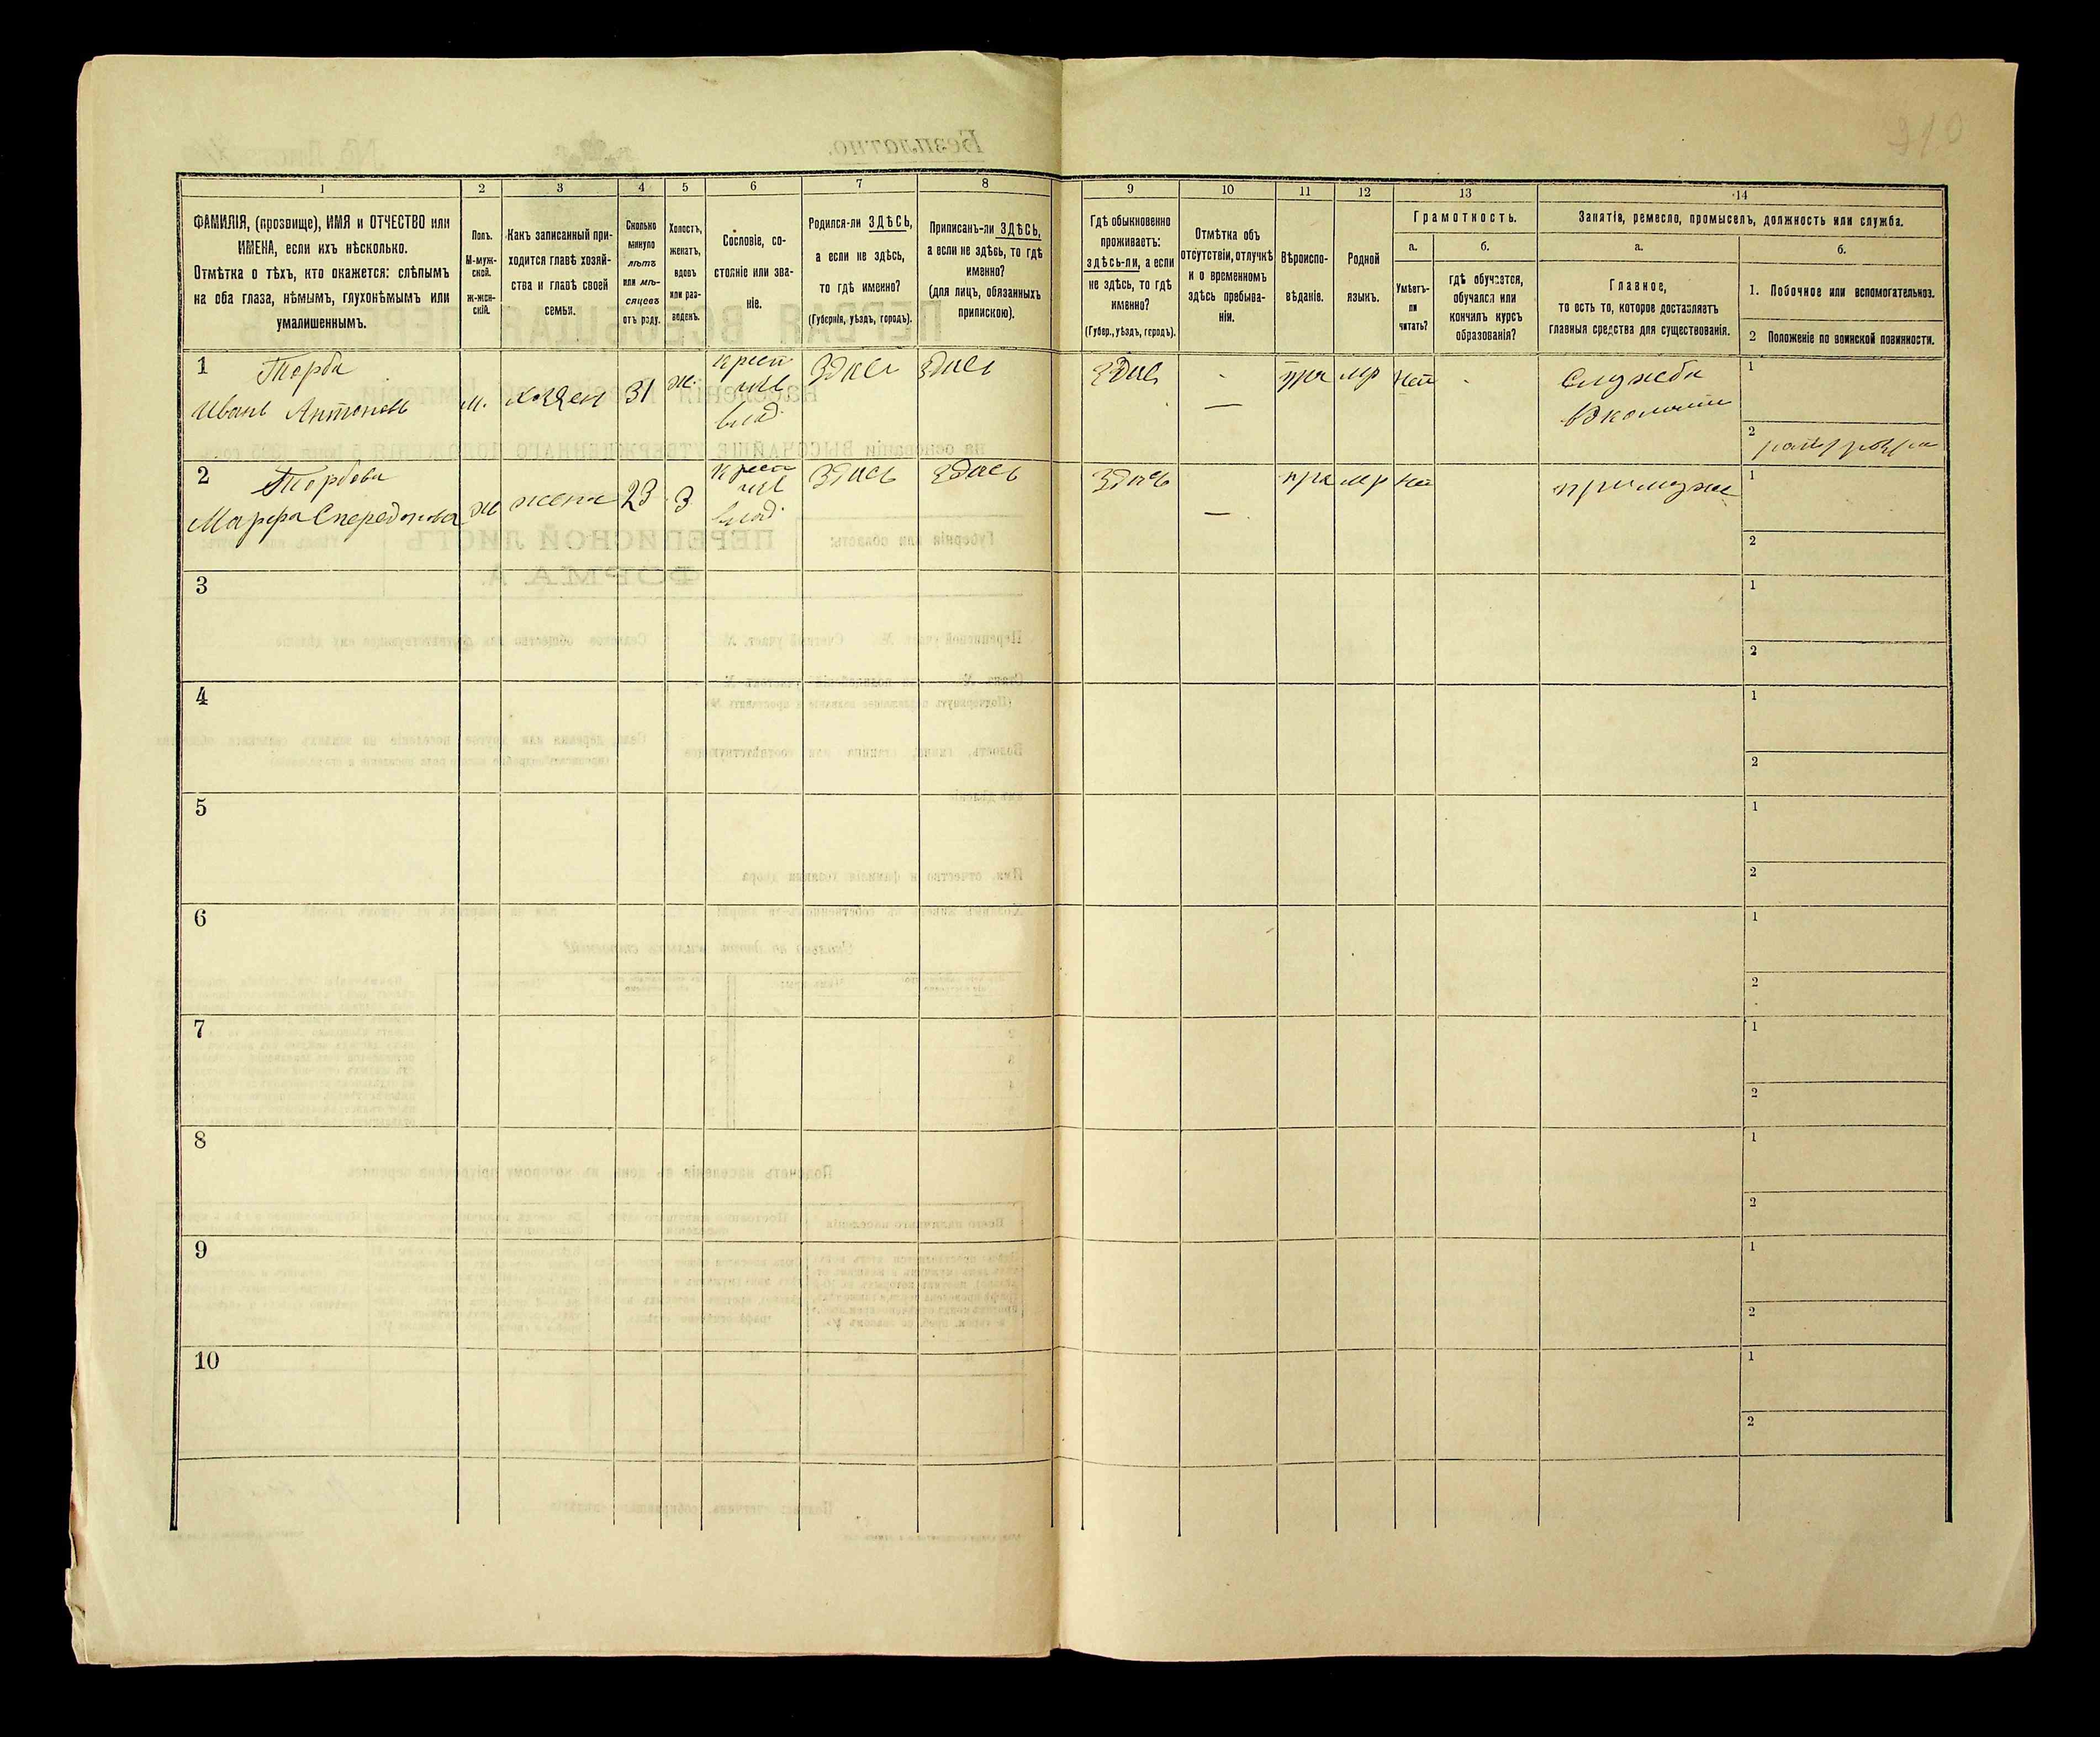 910
1
2
3
4
5
6
7
8
9
10
11
12
13
14
ФАМИЛІЯ, (прозвище), ИМЯ и ОТЧЕСТВО или
ИМЕНА, если ихъ нѣсколько.
Отмѣтка о тѣхъ, кто окажется: слѣпымъ
на оба глаза, нѣмымъ, глухонѣмымъ или
умалишеннымъ.
Полъ.
М-муж-
ской.
ж-жен-
скій.
Какъ записанный при-
ходится главѣ хозяй-
ства и главѣ своей
семьи.
Сколько
минуло
лѣтъ
или мѣ-
сяцевъ
отъ роду.
Холостъ,
женатъ,
вдовъ
или раз-
веденъ.
Сословіе, со-
стояніе или зва-
ніе.
Родился-ли ЗДѢСЬ,
а если не здѣсь,
то гдѣ именно?
(Губернія, уѣздъ, городъ).
Приписанъ-ли ЗДѢСЬ,
а если не здѣсь, то гдѣ
именно?
(для лицъ, обязанныхъ
припискою).
Гдѣ обыкновенно
проживаетъ:
здѣсь-ли, а если
не здѣсь, то гдѣ
именно?
(Губер., уѣздъ, городъ).
Отмѣтка объ
отсутствіи, отлучкѣ
и о временномъ
здѣсь пребыва-
ніи.
Вѣроиспо-
вѣданіе.
Родной
языкъ.
Грамотность.
а.
Умѣетъ-
ли
читать?
б.
гдѣ обучается,
обучался или
кончилъ курсъ
образованія?
Занятіе, ремесло, промыселъ, должность или служба.
а.
Главное,
то есть то, которое доставляетъ
главныя средства для существованія.
б.
1. Побочное или вспомогательное.
2 Положеніе по воинской повинности.
1 Терба
Иванъ Антоновъ
м.
хозяен
31
ж.
крест
влад.
здись
здись
здись
—
пра
мр
нет
Служба
1
2
2 Тербова
Марфа Спередонова
ж
жена
23
З
крест
влад.
здись
здись
здись
—
пра
мр
нет
при муже
1
2
3
1
2
4
1
2
5
1
2
6
1
2
7
1
2
8
1
2
9
1
2
10
1
2